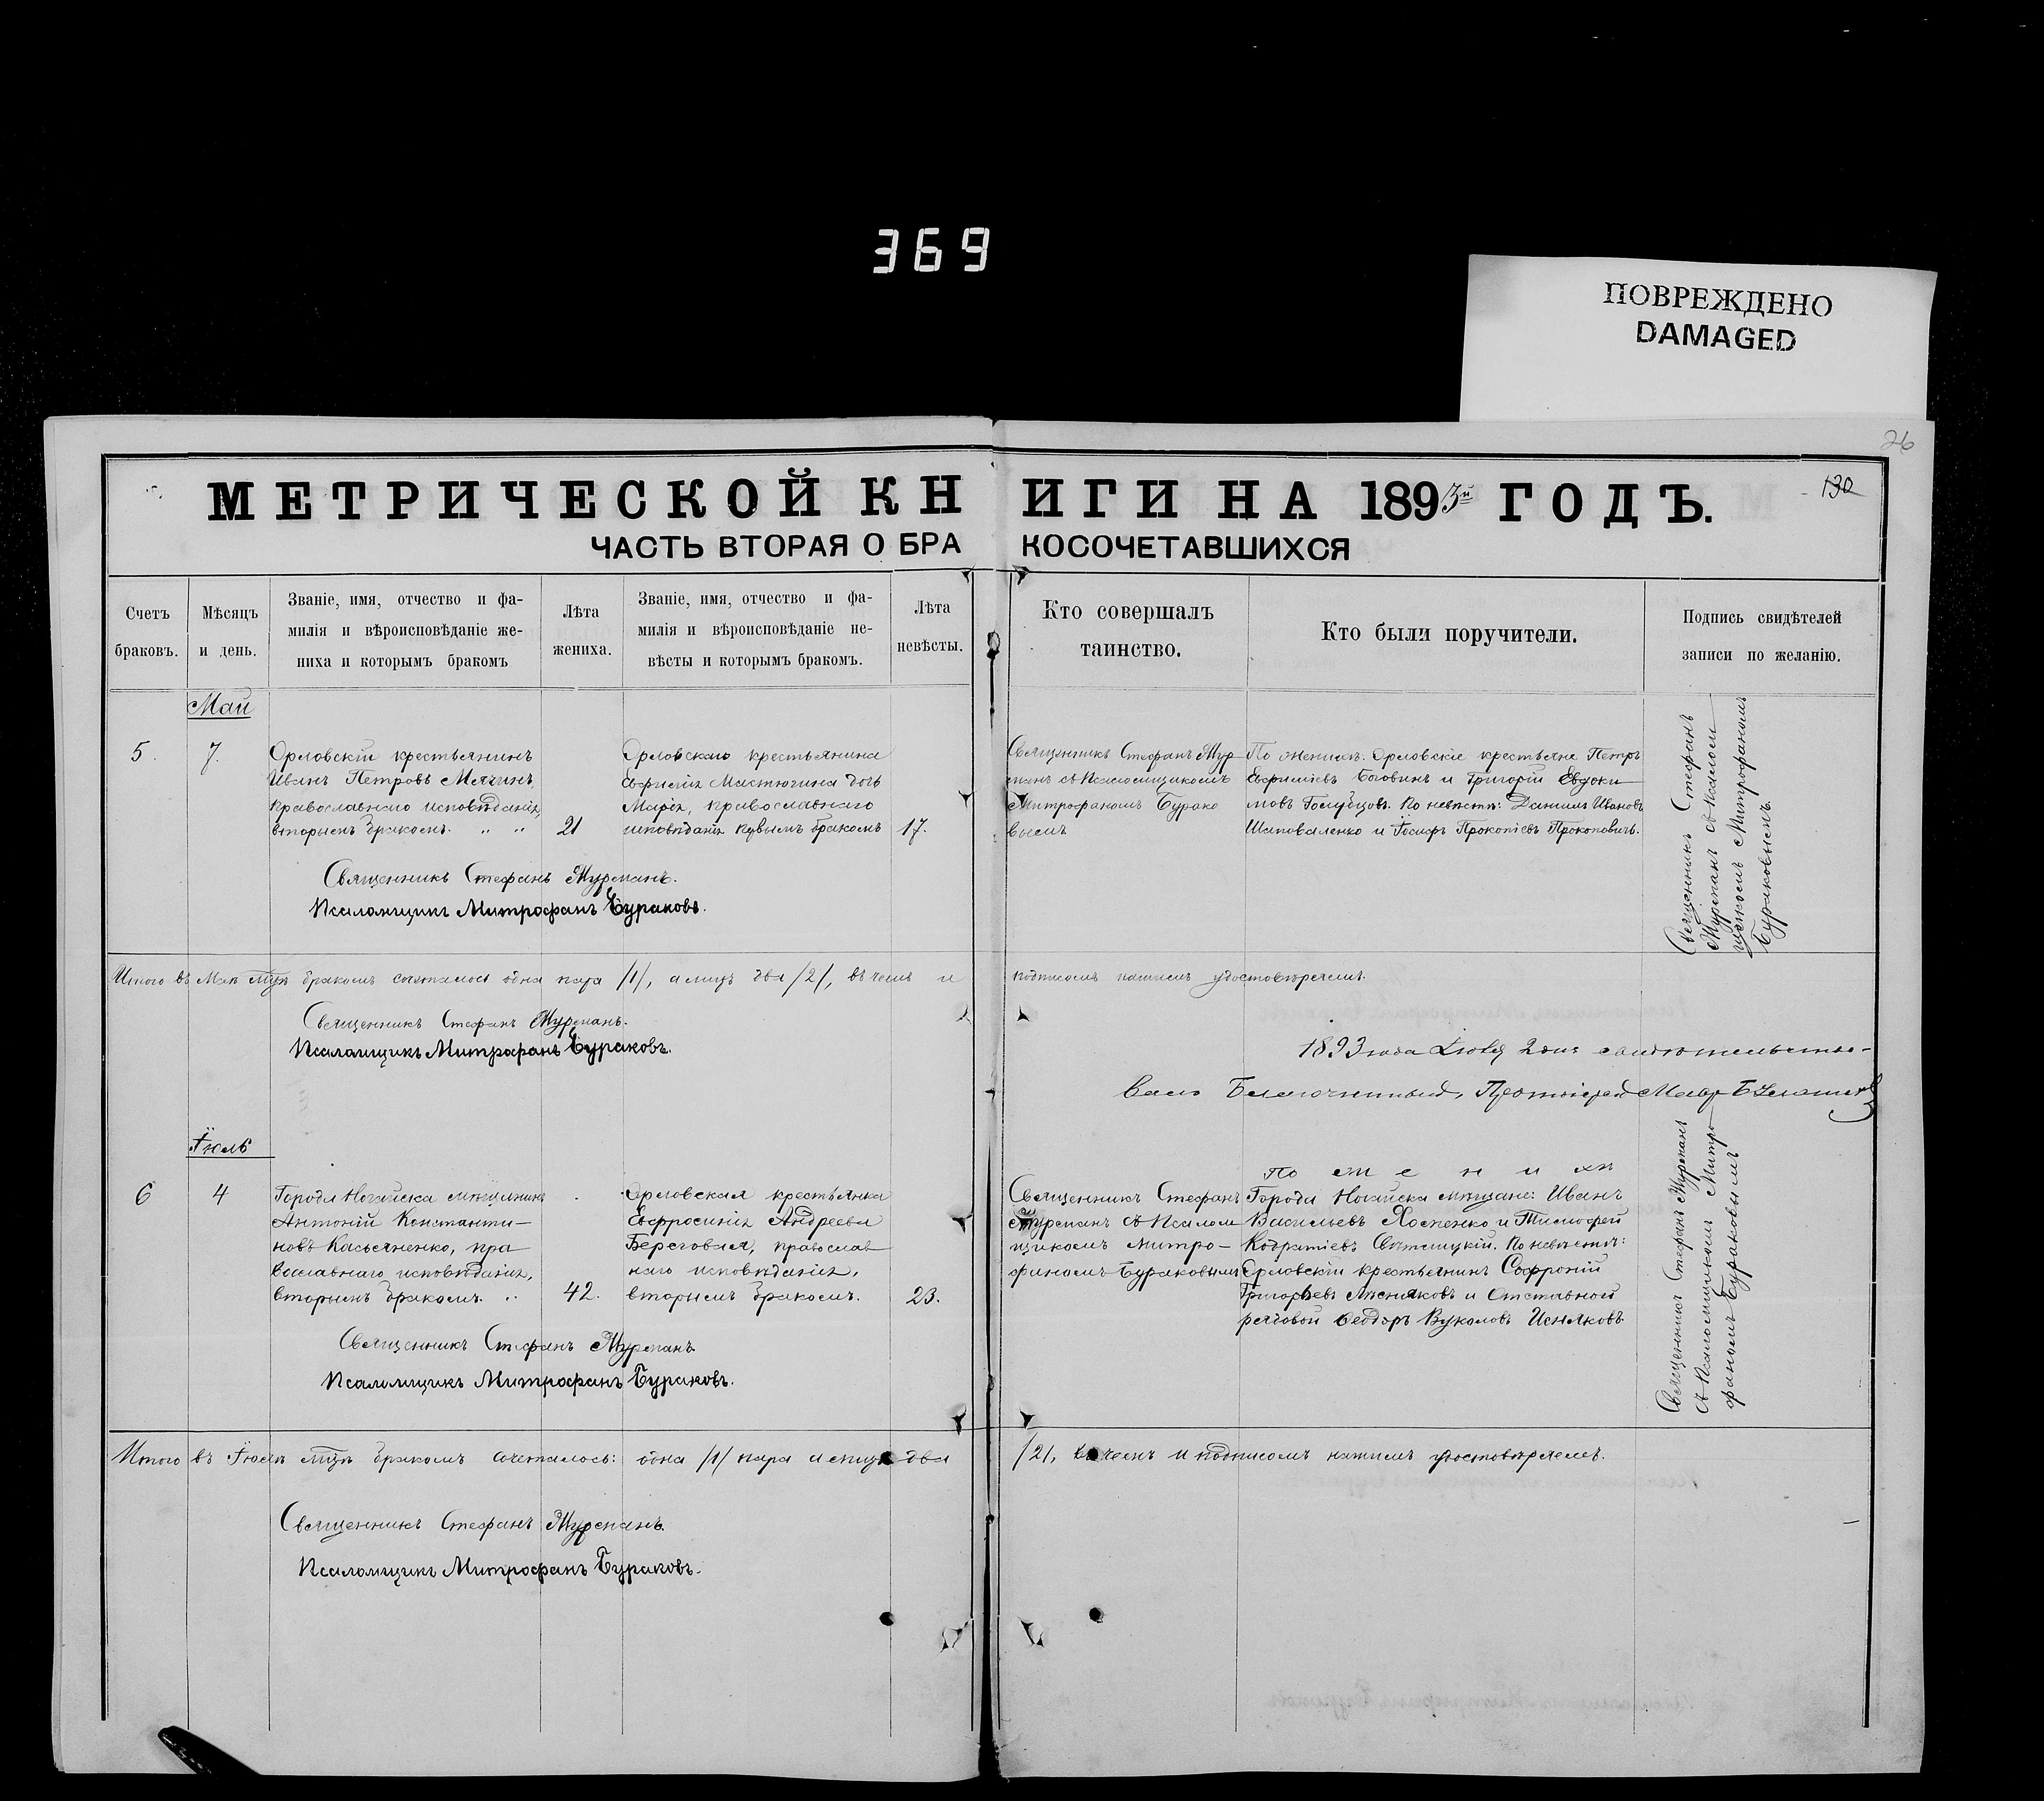 369
ПОВРЕЖДЕНО
DAMAGED
26
130
МЕТРИЧЕСКОЙ КНИГИ НА 1893й ГОДЪ.
ЧАСТЬ ВТОРАЯ О БРАКОСОЧЕТАВШИХСЯ
Счетъ
браковъ.
Мѣсяцъ
и день.
Званіе, имя, отчество и фа-
милія и вѣроисповѣданіе же-
ниха и которымъ бракомъ
Лѣта
жениха.
Званіе, имя, отчество и фа-
милія и вѣроисповѣданіе не-
вѣсты и которымъ бракомъ.
Лѣта
невѣсты.
Кто совершалъ
таинство.
Кто были поручители.
Подпись свидѣтелей
записи по желанію.
Май
5.
7.
Орловскій крестьянинъ
Иванъ Петровъ
православнаго исповѣданія,
вторымъ бракомъ. " "
21
Орловскаго крестьянина
дочь
Марія, православнаго
исповѣданія первымъ бракомъ
17.
Священникъ Стефанъ Мур
манъ съ Псаломщикомъ
Митрофаномъ Бурако
вымъ
По женихѣ: Орловскіе крестьяне Петръ
и Григорій Евдоки
мовъ Голубцовъ. По невѣстѣ: Даніилъ Ивановъ
Шаповаленко и Іосифъ Прокопіевъ Прокоповичъ.
Священникъ Стефанъ
Мурманъ съ Псалом
щикомъ Митрофаномъ
Бураковымъ.
Священникъ Стефанъ Мурманъ.
Псаломщикъ Митрофанъ Бураковъ.
Итого въ Маѣ мцѣ бракомъ сочеталось одна пара /1/, а лицъ два /2/, въ чемъ и подписомъ нашимъ удостовѣряемъ.
Священникъ Стефанъ Мурманъ.
Псаломщикъ Митрофанъ Бураковъ.
1893 года 2 дня свидѣтельство-
валъ Благочинный, Протоіерей
Іюль
6
4
Города Ногайска мѣщанинъ
Антоній Константи-
новъ Касьяненко, пра
вославнаго исповѣданія,
вторымъ бракомъ. "
42.
Орловская крестьянка
Евфросинія Андреева
Береговая, православ
наго исповѣданія,
вторымъ бракомъ.
23.
Священникъ Стефанъ
Мурманъ съ Псалом
щикомъ Митро-
фаномъ Бураковымъ
По женихѣ
Города Ногайска мѣщане: Иванъ
Васильевъ и Тимофей
По невѣстѣ:
Орловскій крестьянинъ Софроній
Григорьевъ и Отставной
рядовой Феодоръ Вуколовъ
Священникъ Стефанъ Мурманъ
съ Псаломщикомъ Митро
фаномъ Бураковымъ
Священникъ Стефанъ Мурманъ
Псаломщикъ Митрофанъ Бураковъ.
Итого въ Іюлѣ мцѣ бракомъ сочеталось: одна /1/ пара а лицъ два /2/, въ чемъ и подписомъ нашимъ удостовѣряемъ.
Священникъ Стефанъ Мурманъ.
Псаломщикъ Митрофанъ Бураковъ.